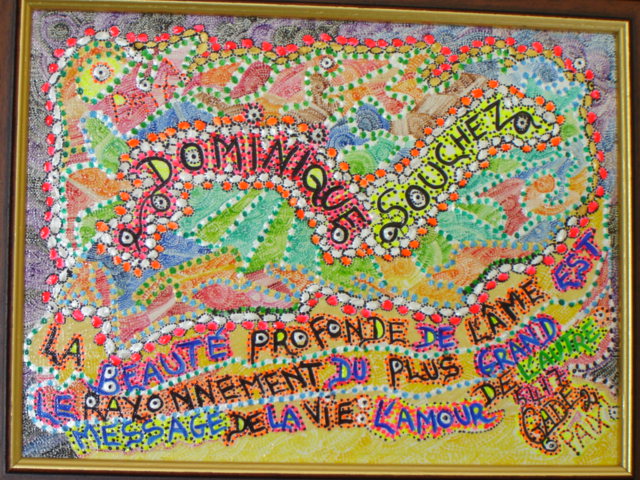 DOMINIQUE
SOUCHEZ
LA BEAUTÉ PROFONDE DE L'ÂME EST
LE RAYONNEMENT DU PLUS GRAND
MESSAGE DE LA VIE: L'AMOUR DE L'AUTRE
PAIX